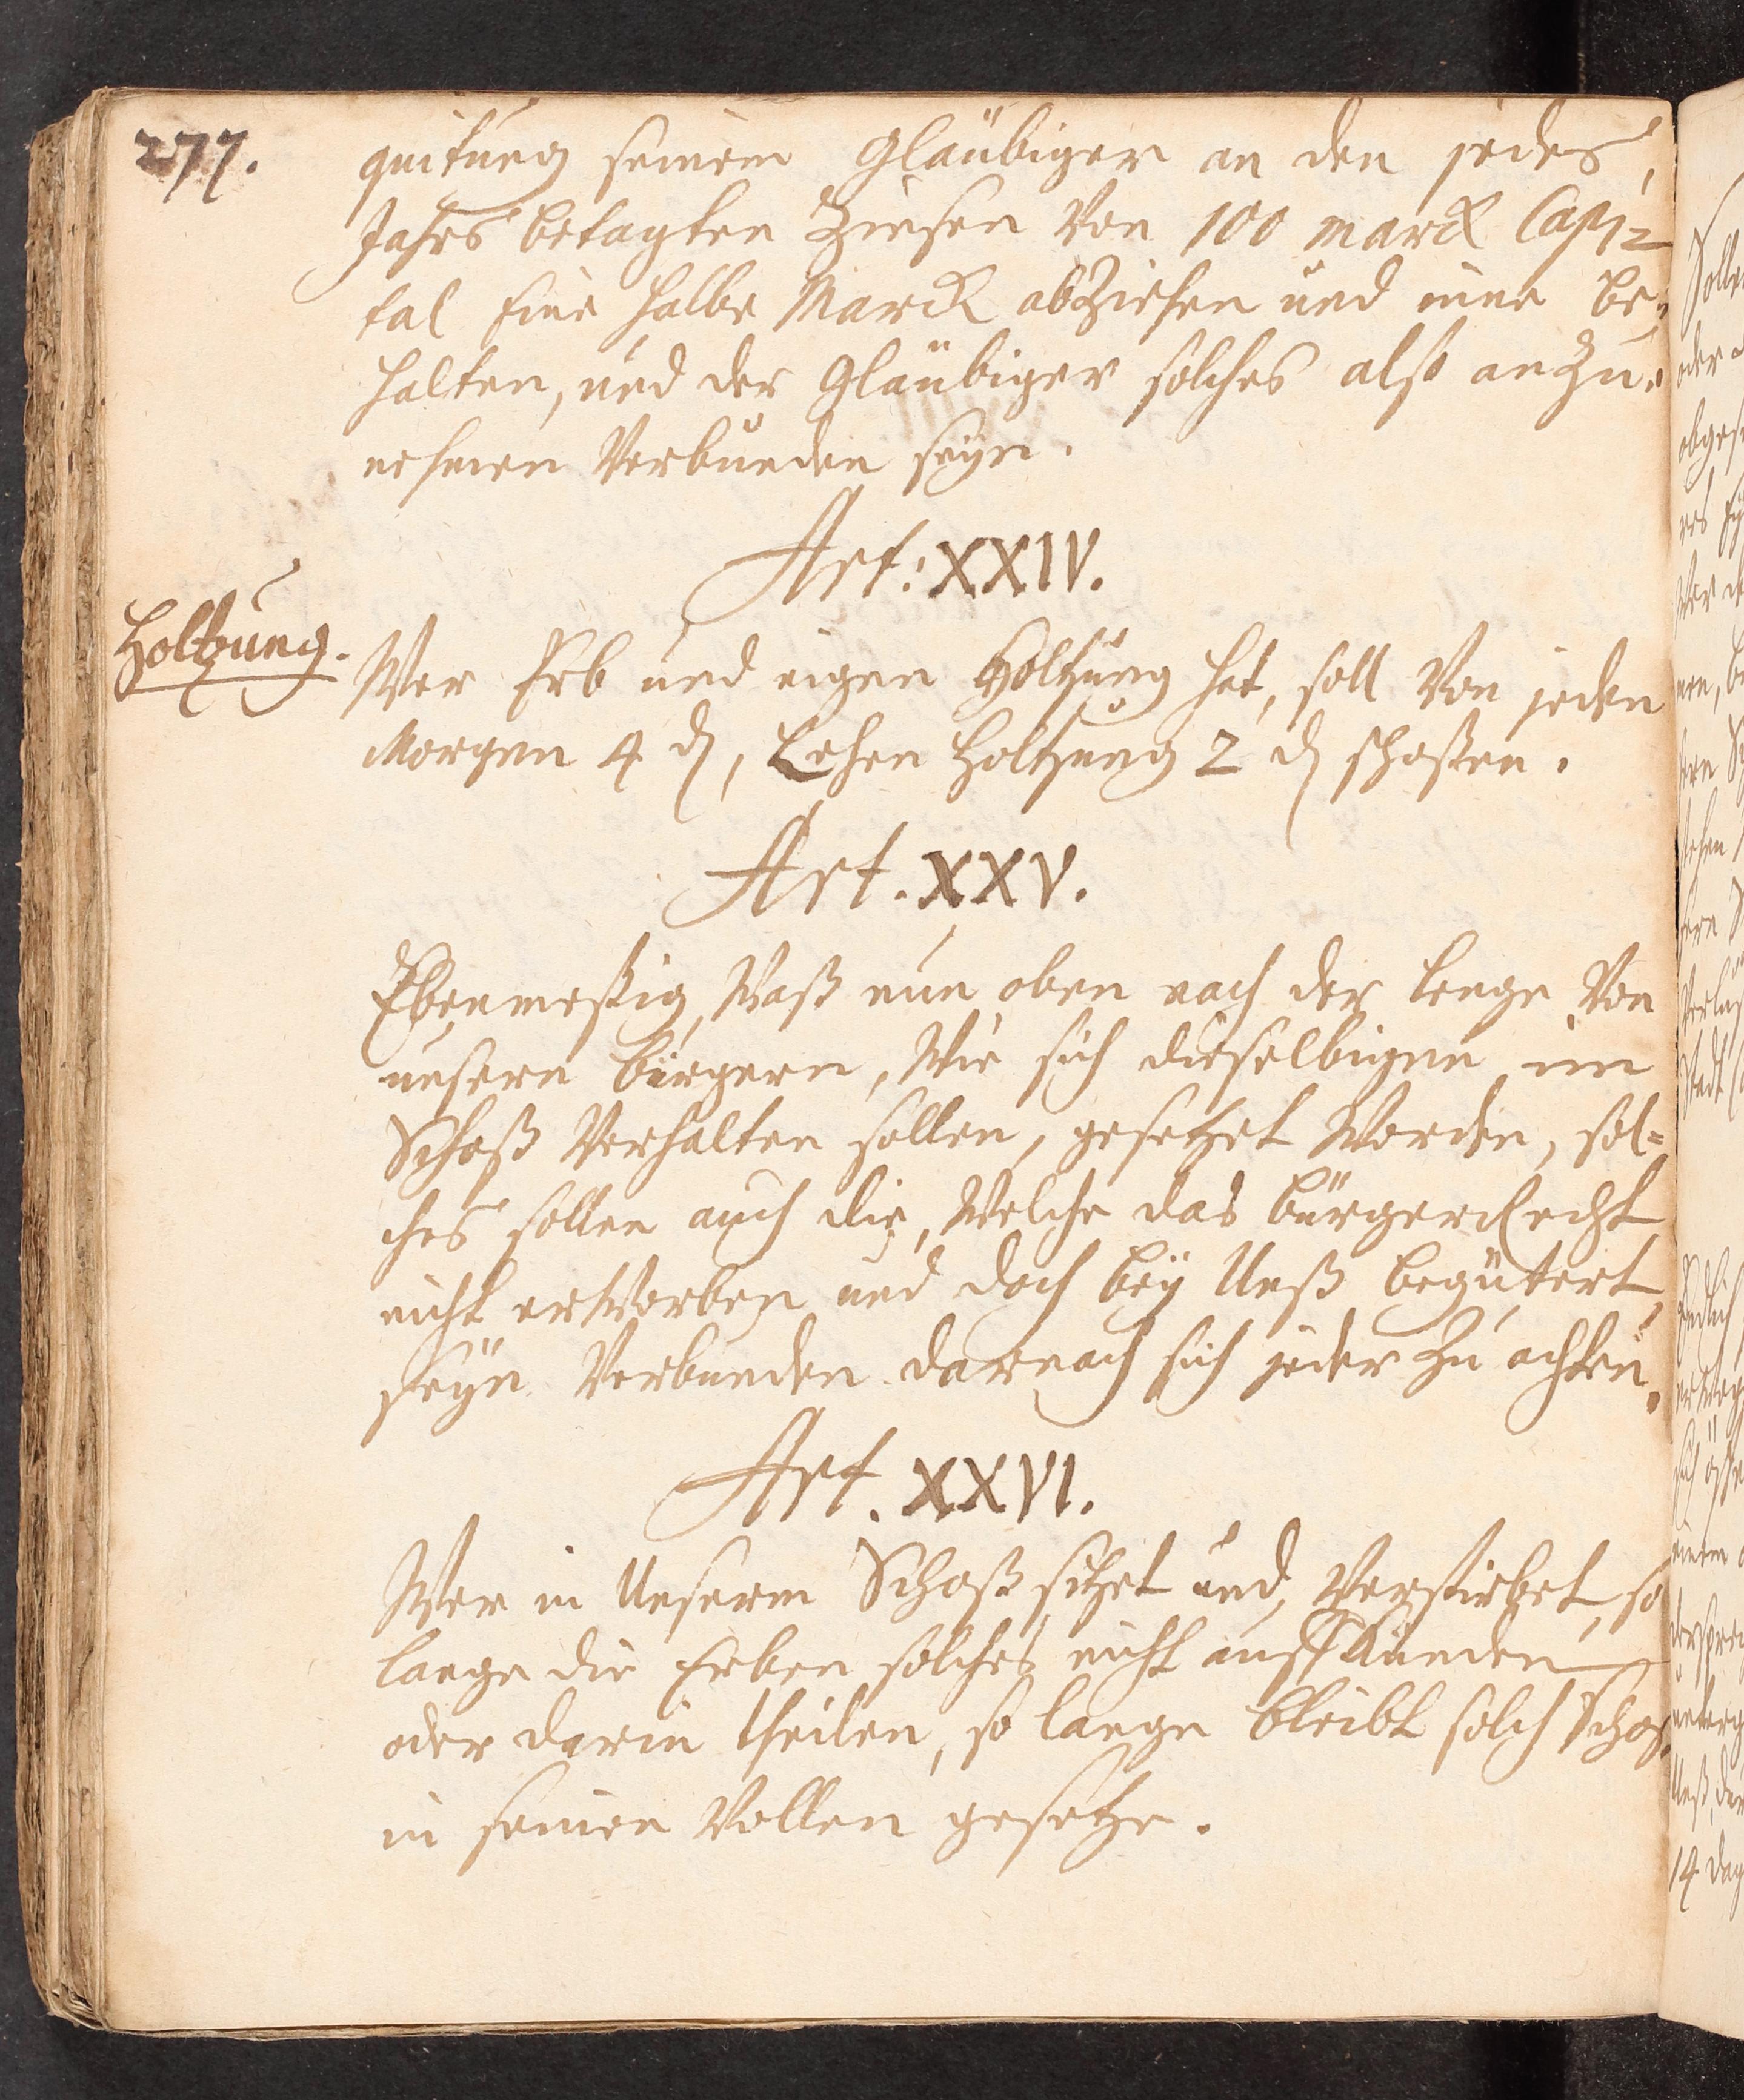 277.
quitung seinem Gläubiger an den jedes
Jahrs betagten Zinsen Von 100 marck Capi=
tal Eine halbe Marck abZiehen und inne be=
halten, und der Gläubiger solches also anZu=
nehmen Verbunden seyn.
Art: XXIV.
Holtzung.
Wer Erb und eigen Holtzung hat, soll Von jeden
Morgen 4 ₰, Lehen Holtzung 2 ₰ schoßen.
Art. XXV.
Ebenmeßig, Waß nun oben nach der lenge Von
unsern bürgern, Wie sich dieselbigen im
Schoß Verhalten sollen, gesetzet Worden, sol=
ches sollen auch die, Welche das bürgerRecht
nicht erWorben und doch beÿ Unß begütert,
seÿn Verbunden darnach sich jeder Zu achten.
Art. XXVI.
Wer in Unserm Schoß sitzet und Verstirbet, so
lange die Erben solches nicht auffkünden
oder darin theilen, so lange bleibt solch Schoß
in seinen Vollen gesetze.